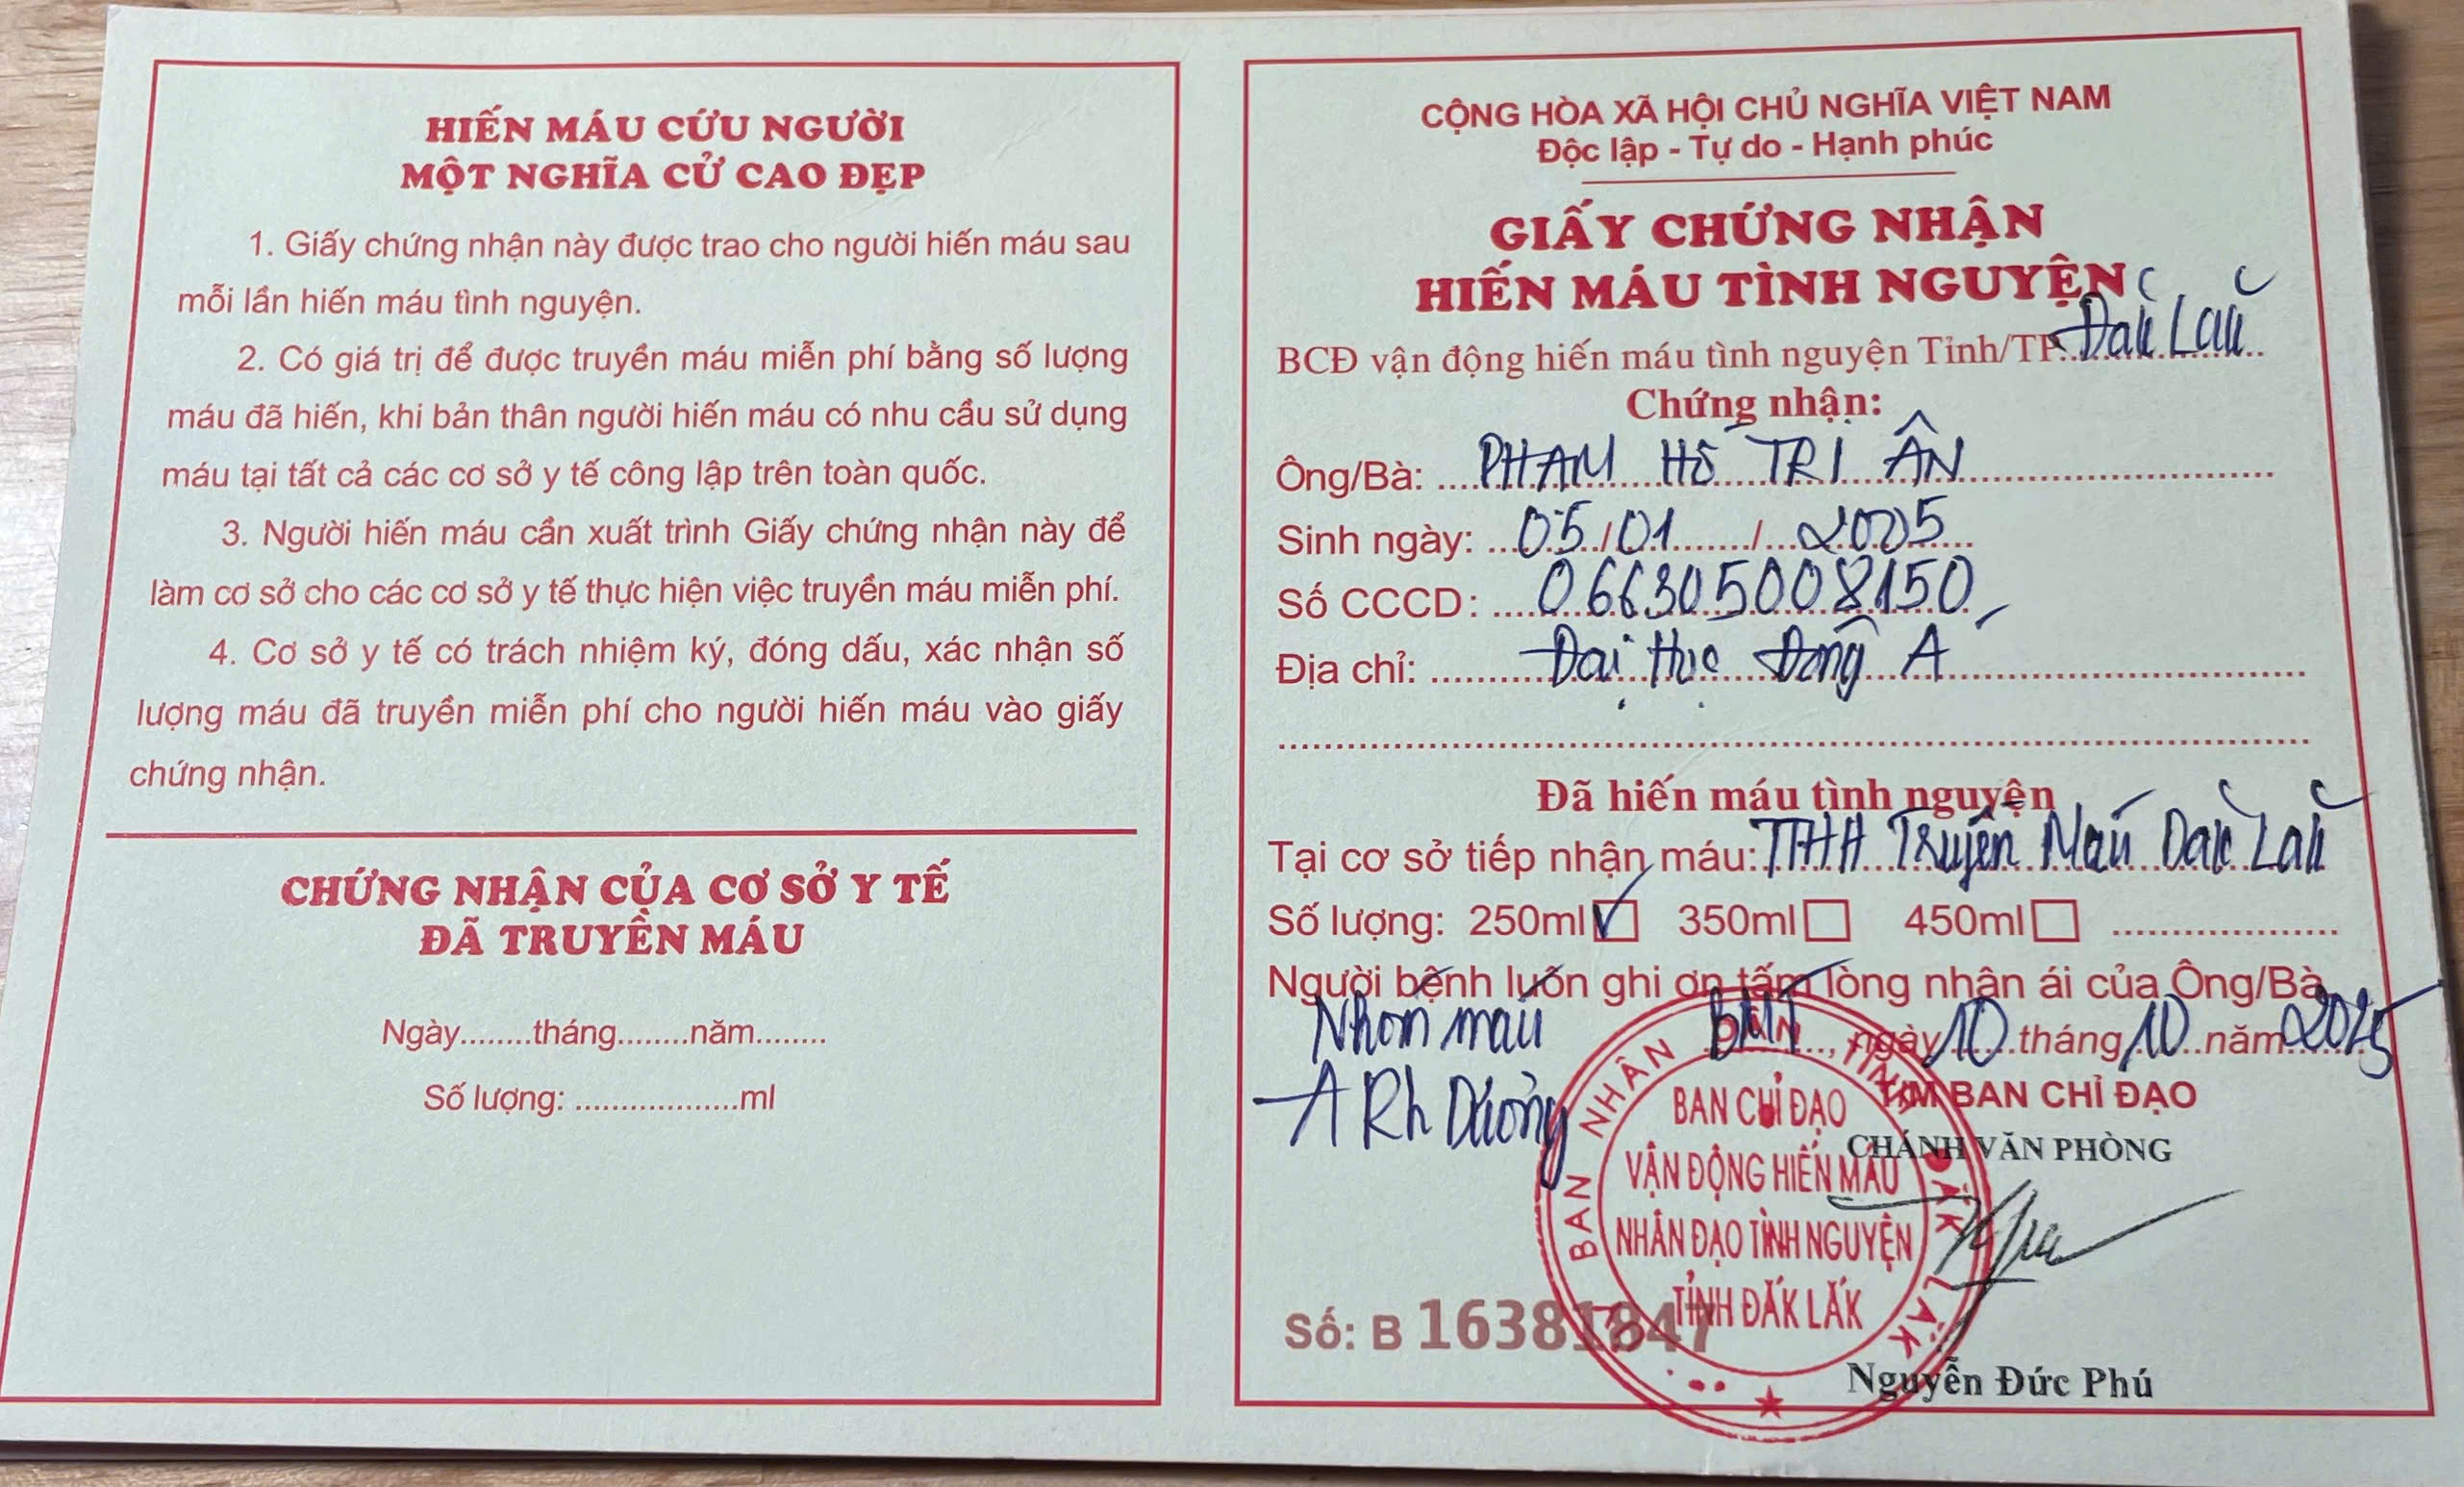 HIẾN MÁU CỨU NGƯỜI
MỘT NGHĨA CỬ CAO ĐẸP
1. Giấy chứng nhận này được trao cho người hiến máu sau
mỗi lần hiến máu tình nguyện.
2. Có giá trị để được truyền máu miễn phí bằng số lượng
máu đã hiến, khi bản thân người hiến máu có nhu cầu sử dụng
máu tại tất cả các cơ sở y tế công lập trên toàn quốc.
3. Người hiến máu cần xuất trình Giấy chứng nhận này để
làm cơ sở cho các cơ sở y tế thực hiện việc truyền máu miễn phí.
4. Cơ sở y tế có trách nhiệm ký, đóng dấu, xác nhận số
lượng máu đã truyền miễn phí cho người hiến máu vào giấy
chứng nhận.
CHỨNG NHẬN CỦA CƠ SỞ Y TẾ
ĐÃ TRUYỀN MÁU
Ngày........tháng........năm........
Số lượng: ...................ml
CỘNG HÒA XÃ HỘI CHỦ NGHĨA VIỆT NAM
Độc lập - Tự do - Hạnh phúc
GIẤY CHỨNG NHẬN
HIẾN MÁU TÌNH NGUYỆN
BCĐ vận động hiến máu tình nguyện Tỉnh/TP: Đăk Lăk
Chứng nhận:
Ông/Bà: PHAM HỒ TRI ÂN
Sinh ngày: 05/01/2005
Số CCCD: 066305008150
Địa chỉ: Đại Học Đông Á
Đã hiến máu tình nguyện
Tại cơ sở tiếp nhận máu: TTHH Truyền Máu Đăk Lăk
Số lượng: 250ml 350ml 450ml
Người bệnh luôn ghi ơn tấm lòng nhân ái của Ông/Bà
Nhóm máu BMT, ngày 10 tháng 10 năm 2025
A Rh Dương
TM BAN CHỈ ĐẠO
CHÁNH VĂN PHÒNG
BAN NHÂN DÂN TỈNH ĐẮK LẮK
BAN CHỈ ĐẠO
VẬN ĐỘNG HIẾN MÁU
NHÂN ĐẠO TÌNH NGUYỆN
TỈNH ĐẮK LẮK
Số: B 16381847
Nguyễn Đức Phú